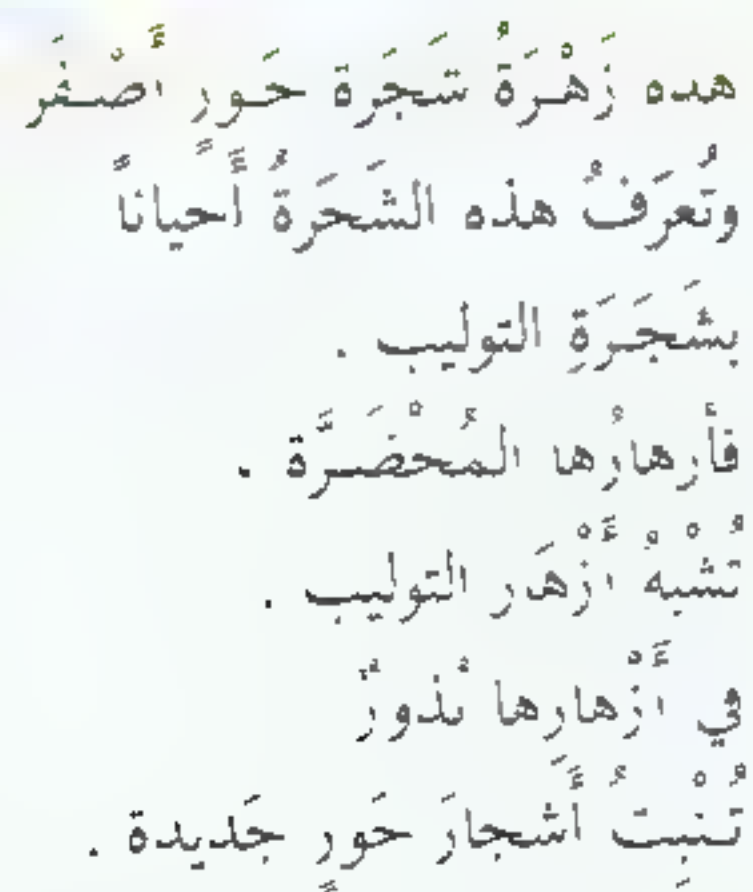 هذه زَهْرَةُ شَجَرَة حَور أَصْفَر
وتُعرَفُ هذه الشَجَرَةُ أَحياناً
بشَجَرَةِ التوليب .
فأزهارُها المُخْضَرَّة .
تُشْبِهُ أَزْهَار التوليب .
في أَزْهارِها بُذورٌ
تُنْبِتُ أَشجارَ حَورٍ جَديدة .